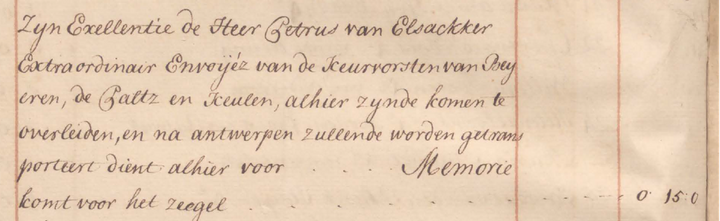 Zyn Exellentie de Heer Petrus van Elsackker
Extraordinair Envoyéz van de Keurvorsten van Bey
eren, de Paltz en Keulen, alhier zynde komen te
overleiden, en na antwerpen zullende worden getrans
porteert dient alhier voor . . . . Memorie
komt voor het zeegel . . . . . 0 15:0